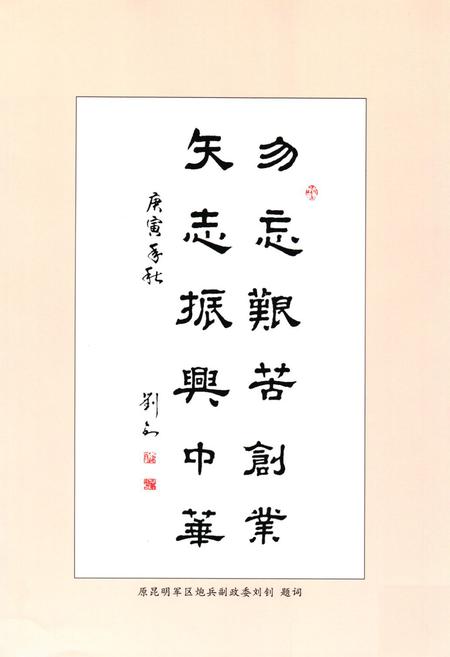 勿忘艱苦創業
矢志振興中華
庚寅年秋
劉钊
原昆明军区炮兵副政委刘钊 题词